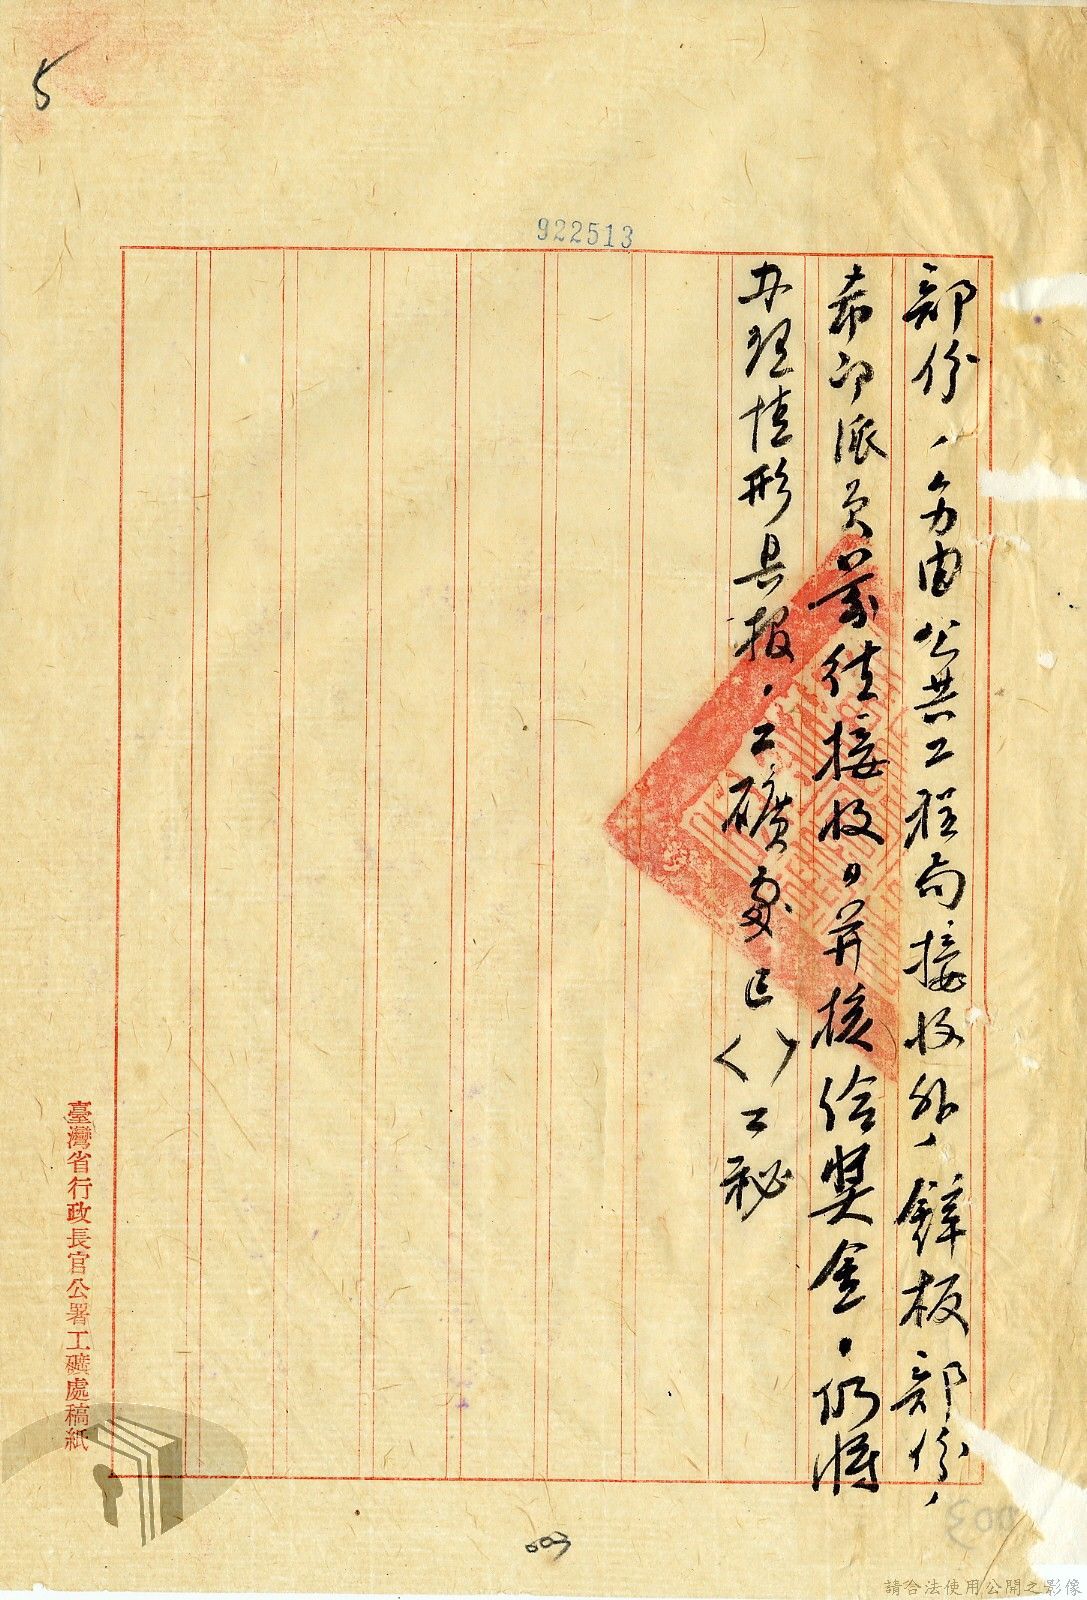 5
922513
部份，另由公共工程局接收外，鋅板部份，
希即派員前往接收，并核給奬金，仍將
办理情形具报，工礦處
〈 〉工秘
臺灣省行政長官公署工礦處稿紙
003
003
請合法使用公開之影像